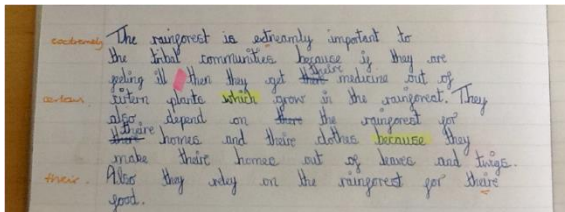 extremely The rainforest is extreamly important to
the tribal communities because if they are
feeling ill then they get theire medicine out of
certain cirtern plants which grow in the rainforest. They
also depend on the rainforest for
theire homes and theire clothes because they
make theire homes out of leaves and twigs.
their Also they reley on the rainforest for theire
food.